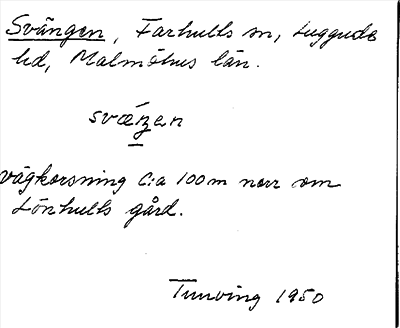 Svängen, Farhults sn, Luggude
hd, Malmöhus län.
sväŋen
Vägkorsning c:a 100 m norr om
Lönhults gård.
Tunving 1950